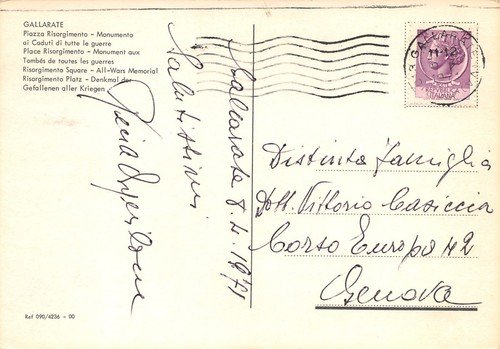 GALLARATE
Piazza Risorgimento - Monumento
ai Caduti di tutte le guerre
Place Risorgimento - Monument aux
Tombés de toutes les guerres
Risorgimento Square - All-Wars Memorial
Risorgimento Platz - Denkmal der
Gefallenen aller Kriegen
GALLARATE
Gallarate 8.4.1971
Salutissimi
Distinta famiglia
Dott. Vittorio Casiccia
Corso Europa 42
Genova
Ref 090/4236 - 00